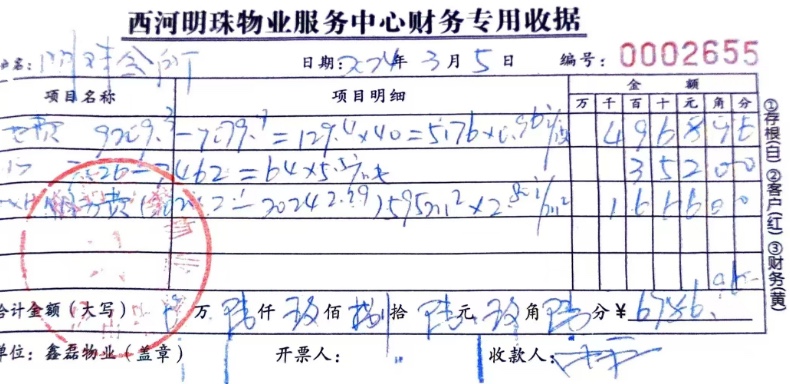 西河明珠物业服务中心财务专用收据
户名: 明珠会所 日期: 2024年 3月 5日 编号: 0002655
项目名称 项目明细 金额
万 千 百 十 元 角 分
电费 9209.3-7079.7=129.4×40=5176×0.96元/度 4968 96
2526-2462=64×5.5元/吨 352 00
服务费 595m²×2.80元/m² 1666 00
合计金额(大写) 万 陆仟 玖佰 捌拾 陆元 玖角 陆分 ¥ 6986.96
单位: 鑫磊物业(盖章) 开票人: 收款人:
①存根(白) ②客户(红) ③财务(黄)